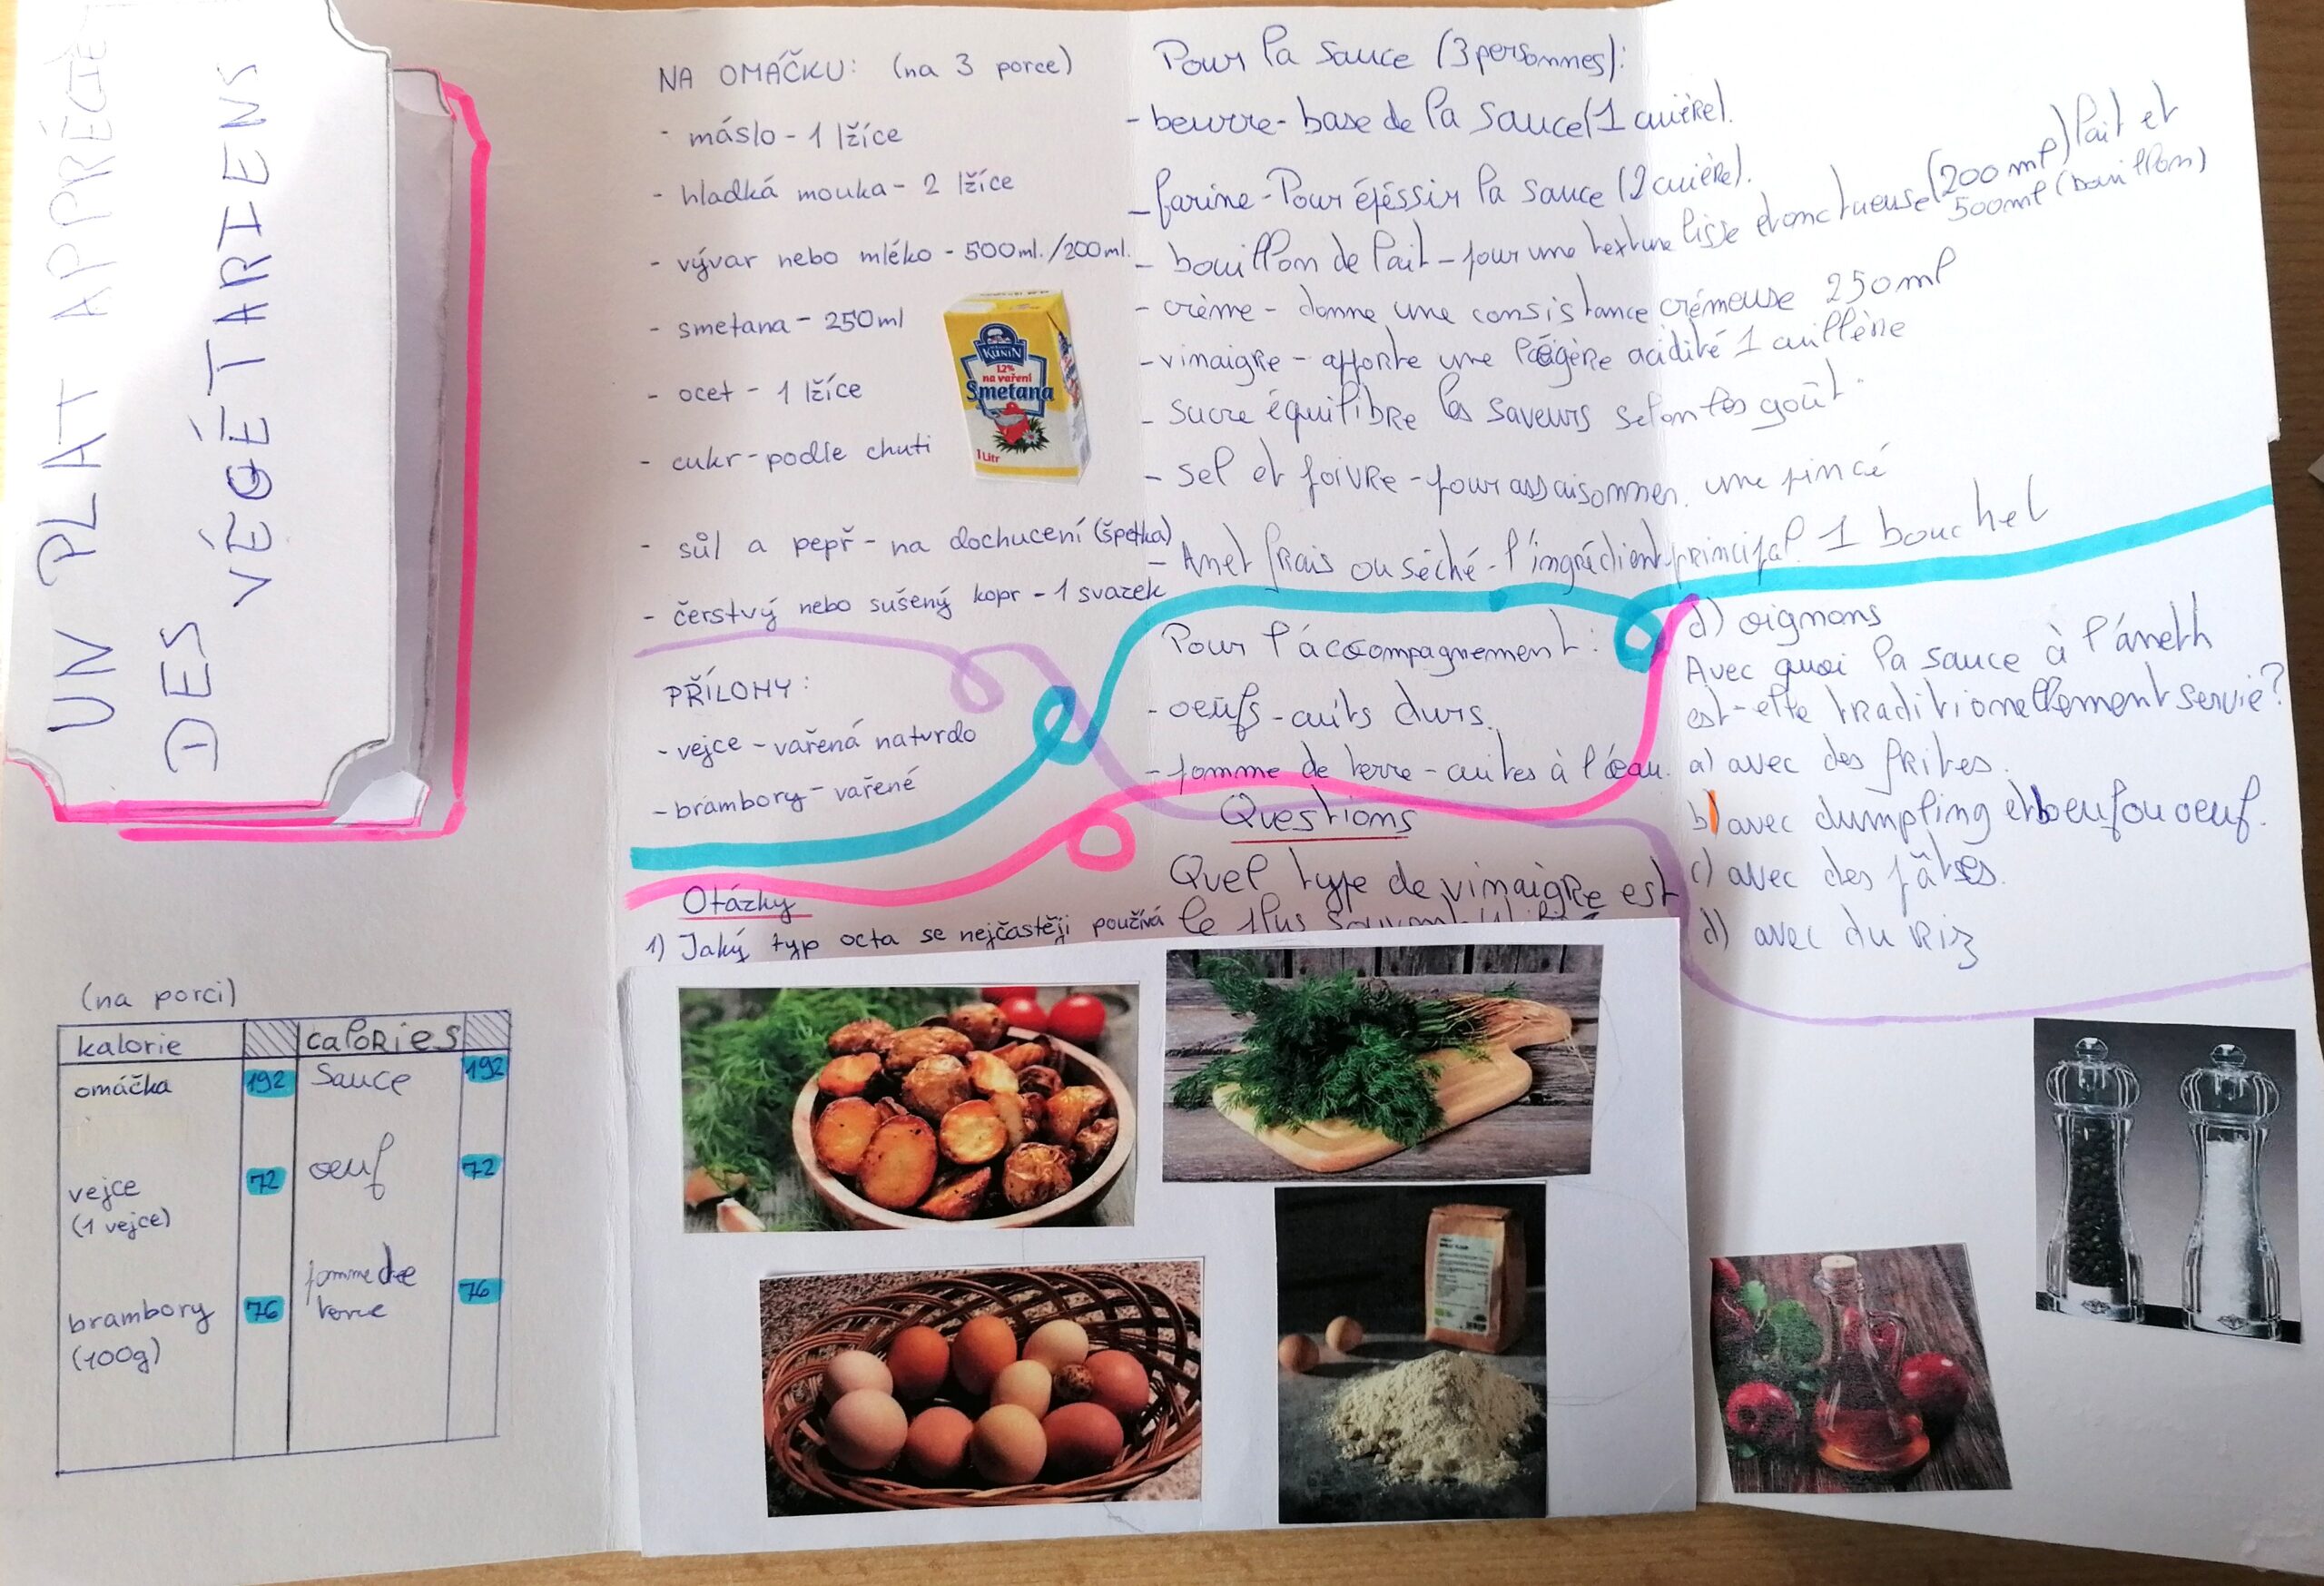 UN PLAT APPRÉCIÉ
DES VÉGÉTARIENS
NA OMÁČKU: (na 3 porce)
- máslo - 1 lžíce
- hladká mouka - 2 lžíce
- vývar nebo mléko - 500ml./200ml.
- smetana - 250ml
- ocet - 1 lžíce
- cukr - podle chuti
- sůl a pepř - na dochucení (špetka)
- čerstvý nebo sušený kopr - 1 svazek
KUNÍN
12%
na vaření
Smetana
1 Litr
PŘÍLOHY:
- vejce - vařená natvrdo
- brambory - vařené
Otázky
1) Jaký typ octa se nejčastěji používá
Pour la sauce (3 personnes):
- beurre - base de la sauce (1 cuière).
- farine - Pour épéssir la sauce (2 cuière).
- bouillon de lait - pour une texture lisse et onctueuse (200 ml) lait et
500ml (bouillon)
- crème - donne une consistance crémeuse 250ml
- vinaigre - apporte une légère acidité 1 cuillère
- sucre équilibre les saveurs selon les goût.
- sel et poivre - pour assaisonner. une pincé
- Anet frais ou séché - l'ingrédient principal. 1 bouchet
Pour l'áccompagnement:
- oeufs - cuits durs.
- pomme de terre - cuites à l'éau.
Questions
Quel type de vinaigre est
le plus souvent
d) oignons
Avec quoi la sauce à l'áneth
est-elle traditionellement servie?
a) avec des frites.
b) avec dumpling et boeuf ou oeuf.
c) avec des pâtes.
d) avec du riz
(na porci)
kalorie calories
omáčka 192 sauce 192
vejce 72 oeuf 72
(1 vejce)
brambory 76 pomme de terre 76
(100g)